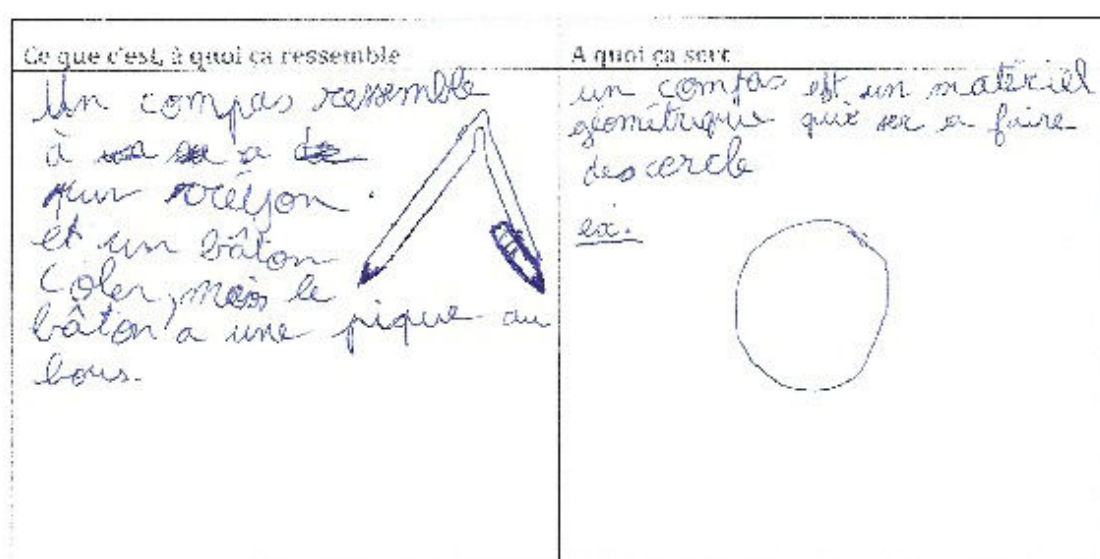 Ce que c'est, à quoi ça ressemble
Un compas ressemble
à a
un créyon.
et un bâton
côler, mais le
bâton a une pique au
bous.
A quoi ça sert
un compas est un matériel
géométrique qui ser a faire
des cercle
ex: